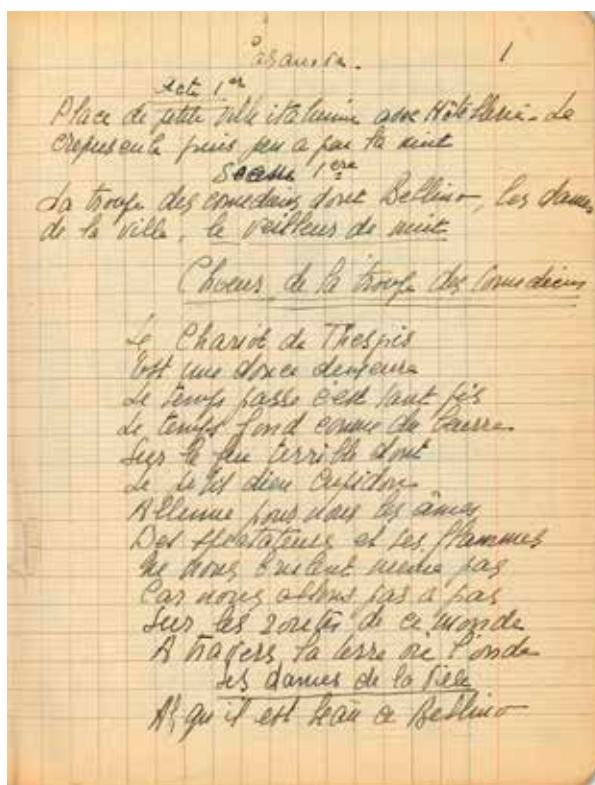 Casanova. 1
Acte 1er
Place de petite ville italienne avec Hôtellerie - Le
crepuscule puis peu a peu la nuit
Scene 1ere
La troupe des comediens dont Bellino, les dames
de la ville, le veilleur de nuit
Choeur de la troupe des Comediens
Le Chariot de Thespis
Est une douce demeure
Le temps passe c'est tant pis
Le temps fond comme du beurre
Sur le feu terrible dont
Le petit dieu Cupidon
Allume pour nous les âmes
Des spectateurs et ses flammes
Ne nous brulent meme pas
Car nous allons pas a pas
Sur les routes de ce monde
A travers la terre où l'onde
Les dames de la Ville
Ah qu'il est beau ce Bellino